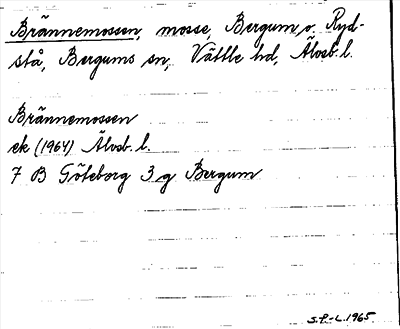 Brännemossen, mosse, Bergum o. Ryd-
stå, Bergums sn, Vättle hd, Älvsb. l.
Brännemossen
ek (1964) Älvsb. l.
7 B Göteborg 3 g Bergum
S.P.-L. 1965.